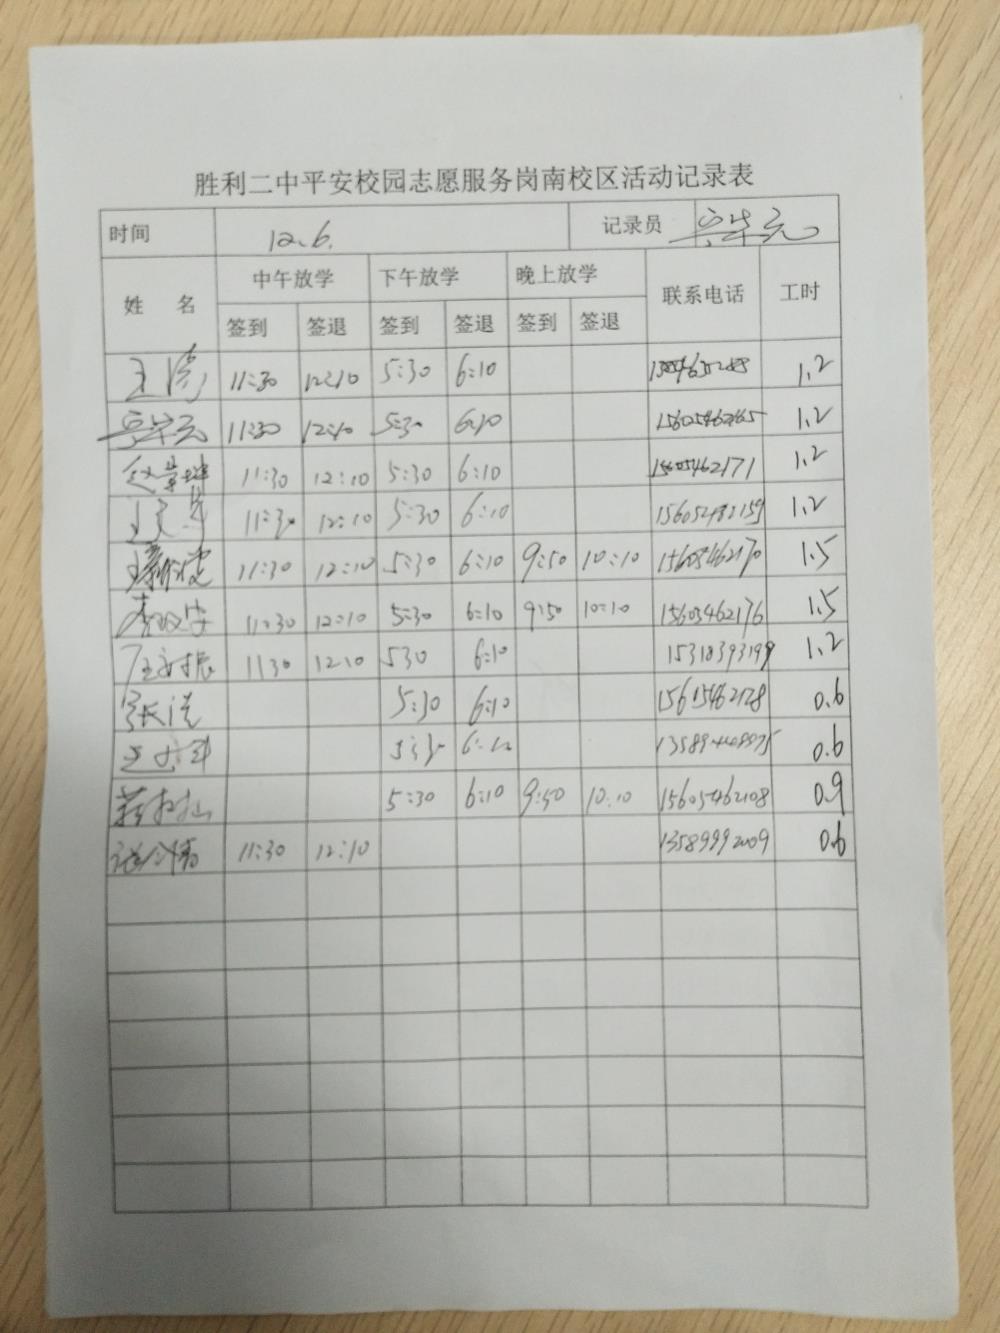 胜利二中平安校园志愿服务岗南校区活动记录表
时间 12.6. 记录员
姓 名 中午放学 下午放学 晚上放学 联系电话 工时
签到 签退 签到 签退 签到 签退
王涛 11:30 12:10 5:30 6:10 1.2
11:30 12:10 5:30 6:10 15605462165 1.2
11:30 12:10 5:30 6:10 15605462171 1.2
11:30 12:10 5:30 6:10 1.2
11:30 12:10 5:30 6:10 9:50 10:10 15605462170 1.5
11:30 12:10 5:30 6:10 9:50 10:10 15605462176 1.5
1130 12:10 530 6:10 15318393199 1.2
张洪 5:30 6:10 15615462128 0.6
5:30 6:10 0.6
5:30 6:10 9:50 10:10 15605462108 0.9
11:30 12:10 13589992009 0.6